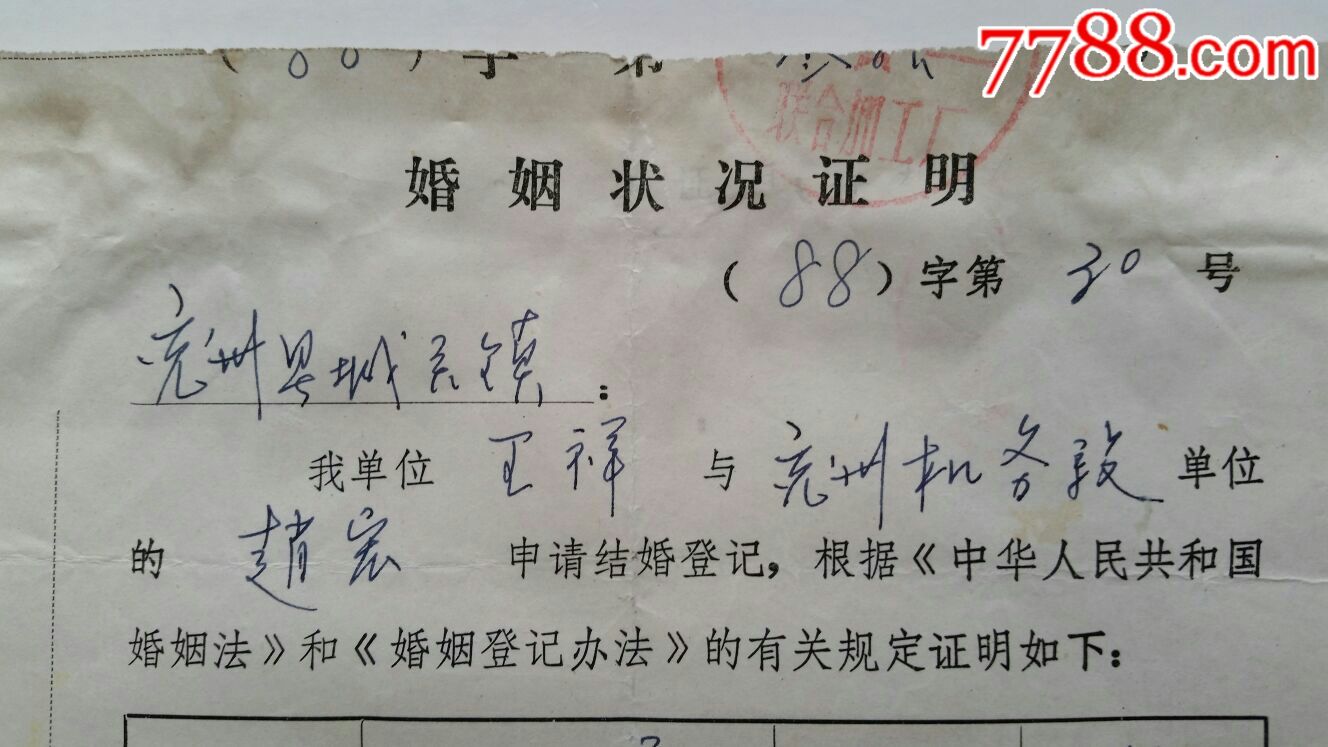 7788.com
(88)字第
联合加工厂
婚姻状况证明
(88)字第 30 号
兖州县城关镇:
我单位 王祥 与 兖州机务段 单位
的 趙宏 申请结婚登记,根据《中华人民共和国
婚姻法》和《婚姻登记办法》的有关规定证明如下: